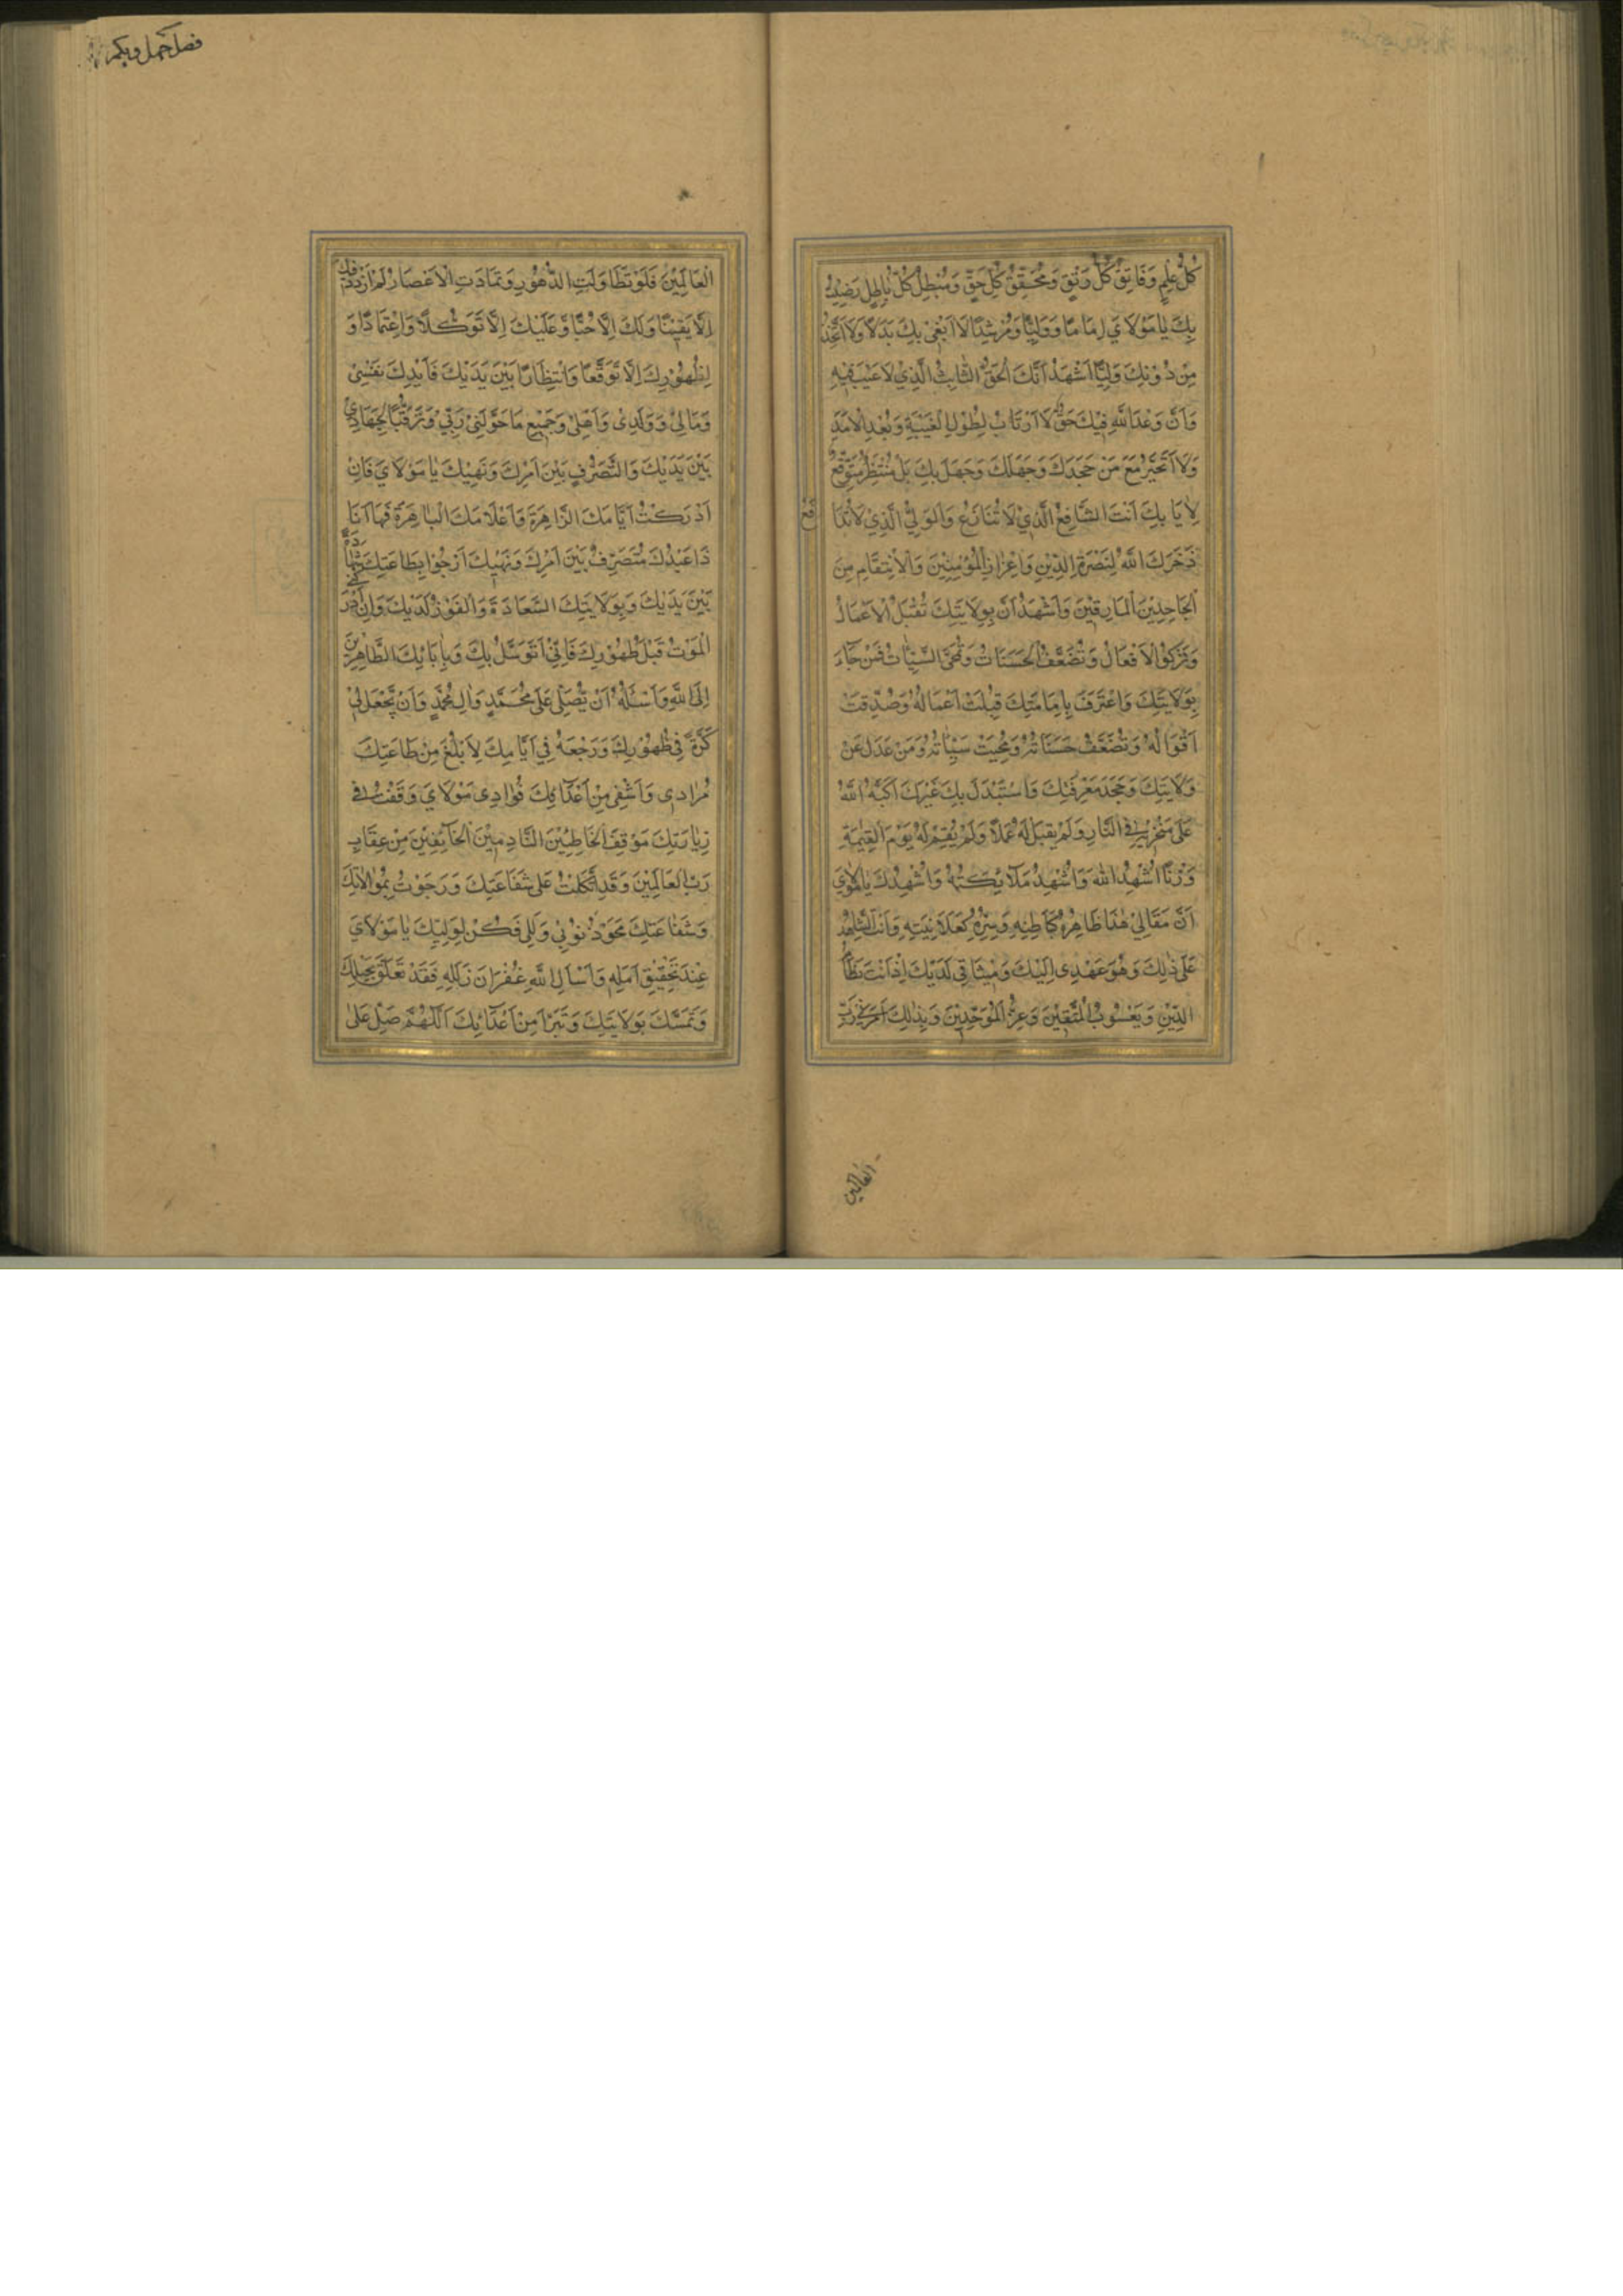 كُلَّ عِلْمٍ وَفَاتِقُ كُلِّ رَتْقٍ وَمُحَقِّقُ كُلِّ حَقٍّ وَمُبْطِلُ كُلِّ بٰاطِلٍ رَضِيتُ
بِكَ يٰا مَوْلَايَ اِمَامًا وَوَلِيًّا وَمُرْشِدًا لَا اَبْتَغِي بِكَ بَدَلًا وَلَا اَتَّخِذُ
مِنْ دُوْنِكَ وَلِيًّا اَشْهَدُ اَنَّكَ الْحَقُّ الثَّابِتُ الَّذِيْ لَا عَيْبَ فِيْهِ
وَاَنَّ وَعْدَ اللّٰهِ فِيْكَ حَقٌّ لَا اَرْتَابُ لِطُوْلِ الْغَيْبَةِ وَبُعْدِ الْاَمَدِ
وَلَا اَتَحَيَّرُ مَعَ مَنْ جَحَدَكَ وَجَهِلَكَ وَجَهِلَ بِكَ بَلْ مُنْتَظِرٌ مُتَوَقِّعٌ
لِاَيَّامِكَ اَنْتَ الشَّافِعُ الَّذِيْ لَا تُنَازَعُ وَالْوَلِيُّ الَّذِيْ لَا تُدَا فَعُ
ذَخَرَكَ اللّٰهُ لِنُصْرَةِ الدِّيْنِ وَاِعْزَازِ الْمُؤْمِنِيْنَ وَالْاِنْتِقَامِ مِنَ
الْجَاحِدِيْنَ الْمَارِقِيْنَ وَاَشْهَدُ اَنَّ بِوِلَايَتِكَ تُقْبَلُ الْاَعْمَالُ
وَتُزَكّٰى الْاَفْعَالُ وَتُضَعَّفُ الْحَسَنَاتُ وَتُمْحَى السَّيِّئٰاتُ فَمَنْ جَآءَ
بِوِلَايَتِكَ وَاعْتَرَفَ بِاِمَامَتِكَ قُبِلَتْ اَعْمَالُهُ وَصُدِّقَتْ
اَقْوَالُهُ وَتُضَعَّفُ حَسَنَاتُهُ وَمُحِيَتْ سَيِّئَاتُهُ وَمَنْ عَدَلَ عَنْ
وَلَايَتِكَ وَجَحَدَ مَعْرِفَتَكَ وَاسْتَبْدَلَ بِكَ غَيْرَكَ اَكَبَّهُ اللّٰهُ
عَلٰى مَنْخَرِهِ فِي النَّارِ وَلَمْ يَقْبَلْ لَهُ عَمَلًا وَلَمْ يُقِمْ لَهُ يَوْمَ الْقِيٰمَةِ
وَزْنًا اُشْهِدُ اللّٰهَ وَاُشْهِدُ مَلَآئِكَتَهُ وَاُشْهِدُكَ يٰا مَوْلَايَ
اَنَّ مَقَالِيْ هٰذَا ظَاهِرُهُ كَبَاطِنِهِ وَسِرُّهُ كَعَلَانِيَتِهِ وَاَنْتَ الشَّاهِدُ
عَلٰى ذٰلِكَ وَهُوَ عَهْدِي اِلَيْكَ وَمِيْثَاقِي لَدَيْكَ اِذْ اَنْتَ نِظَامُ
الدِّيْنِ وَيَعْسُوْبُ الْمُتَّقِيْنَ وَعِزُّ الْمُوَحِّدِيْنَ وَبِذٰلِكَ اَمَرَنِي رَبُّ
العالمين
فصل چهل ویکم
الْعَالَمِيْنَ فَلَوْ تَطَاوَلَتِ الدُّهُوْرُ وَتَمَادَتِ الْاَعْصَارُ لَمْ اَزْدَدْ فِيْكَ
اِلَّا يَقِيْنًا وَلَكَ اِلَّا حُبًّا وَعَلَيْكَ اِلَّا تَوَكُّلًا وَاِعْتِمَادًا وَ
لِظُهُوْرِكَ اِلَّا تَوَقُّعًا وَانْتِظَارًا بَيْنَ يَدَيْكَ فَاَبْذِلَكَ نَفْسِيْ
وَمَالِيْ وَوَلَدِيْ وَاَهْلِيْ وَجَمِيْعِ مَا خَوَّلَنِيْ رَبِّيْ وَتَرَقُّبًا لِجِهَادِيْ
بَيْنَ يَدَيْكَ وَالتَّصَرُّفِ بَيْنَ اَمْرِكَ وَنَهْيِكَ يٰا مَوْلَايَ فَاِنْ
اَدْرَكْتُ اَيَّامَكَ الزَّاهِرَةَ وَاَعْلَامَكَ الْبٰاهِرَةَ فَهَا اَنَا
ذَا عَبْدُكَ مُتَصَرِّفٌ بَيْنَ اَمْرِكَ وَنَهْيِكَ اَرْجُوْا بِطَاعَتِكَ شَهَادَةً
بَيْنَ يَدَيْكَ وَبِوِلَايَتِكَ السَّعَادَةَ وَالْفَوْزَ لَدَيْكَ وَاِنْ اَدْرَكَنِي
الْمَوْتُ قَبْلَ ظُهُوْرِكَ فَاِنِّيْ اَتَوَسَّلُ بِكَ وَبِاٰبَائِكَ الطَّاهِرِيْنَ
اِلَى اللّٰهِ وَاَسْئَلُهُ اَنْ يُصَلِّيَ عَلٰى مُحَمَّدٍ وَاٰلِ مُحَمَّدٍ وَاَنْ يَّجْعَلَ لِيْ
كَرَّةً فِيْ ظُهُوْرِكَ وَرَجْعَةً فِيْ اَيَّامِكَ لِاَبْلُغَ مِنْ طَاعَتِكَ
مُرَادِي وَاَشْفِي مِنْ اَعْدَآئِكَ فُؤَادِي مَوْلَايَ وَقَفْتُ فِي
زِيَارَتِكَ مَوْقِفَ الْخَاطِئِيْنَ النَّادِمِيْنَ الْخَآئِفِيْنَ مِنْ عِقَابِ
رَبِّ الْعَالَمِيْنَ وَقَدِ اتَّكَلْتُ عَلٰى شَفَاعَتِكَ وَرَجَوْتُ بِمُوَالَاتِكَ
وَشَفَاعَتِكَ مَحْوَ ذُنُوْبِيْ وَ زَلَلِي فَكُنْ لِوَلِيِّكَ يٰا مَوْلَايَ
عِنْدَ تَحْقِيْقِ اَمَلِهِ وَاَسْأَلِ اللّٰهَ غُفْرَانَ زَلَلِهِ فَقَدْ تَعَلَّقَ بِحَبْلِكَ
وَتَمَسَّكَ بِوَلَايَتِكَ وَتَبَرَّأَ مِنْ اَعْدَآئِكَ اَللّٰهُمَّ صَلِّ عَلٰى